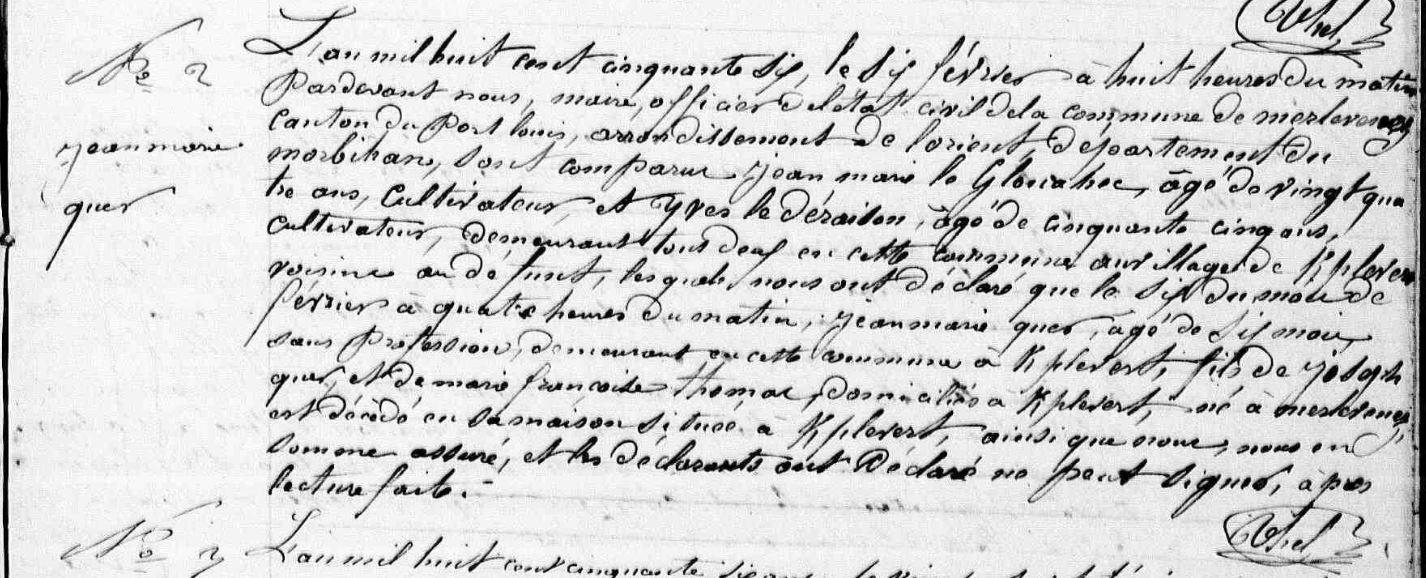 Uhel
N° 2
jean marie
quer
L'an mil huit cent cinquante six, le six février à huit heures du matin
Pardevant nous, maire, officier de l'état civil de la commune de merlevenez
canton du Port louis, arrondissement de lorient, département du
morbihan, sont comparu jean marie le Glouahec, âgé de vingt qua
tre ans, cultivateur, et yves le déraison, âgé de cinquante cinq ans,
cultivateur, demeurant tout deux en cette commune au village de Kplever
voisins au défunt, lesquels nous ont déclaré que le six du mois de
février à quatre heures du matin, jean marie quer, âgé de six mois,
sans Profession, demeurant en cette commune à Kplevert, fils de joseph
quer, et de marie françoise thomas, domiciliés à Kplevert, né à merlevenez,
est décédé en sa maison située à Kplevert, ainsi que nous, nous en
somme assuré, et les déclarants ont Déclaré ne peut signer, après
lecture faite.
Uhel
N° 3
L'an mil huit cent cinquante six